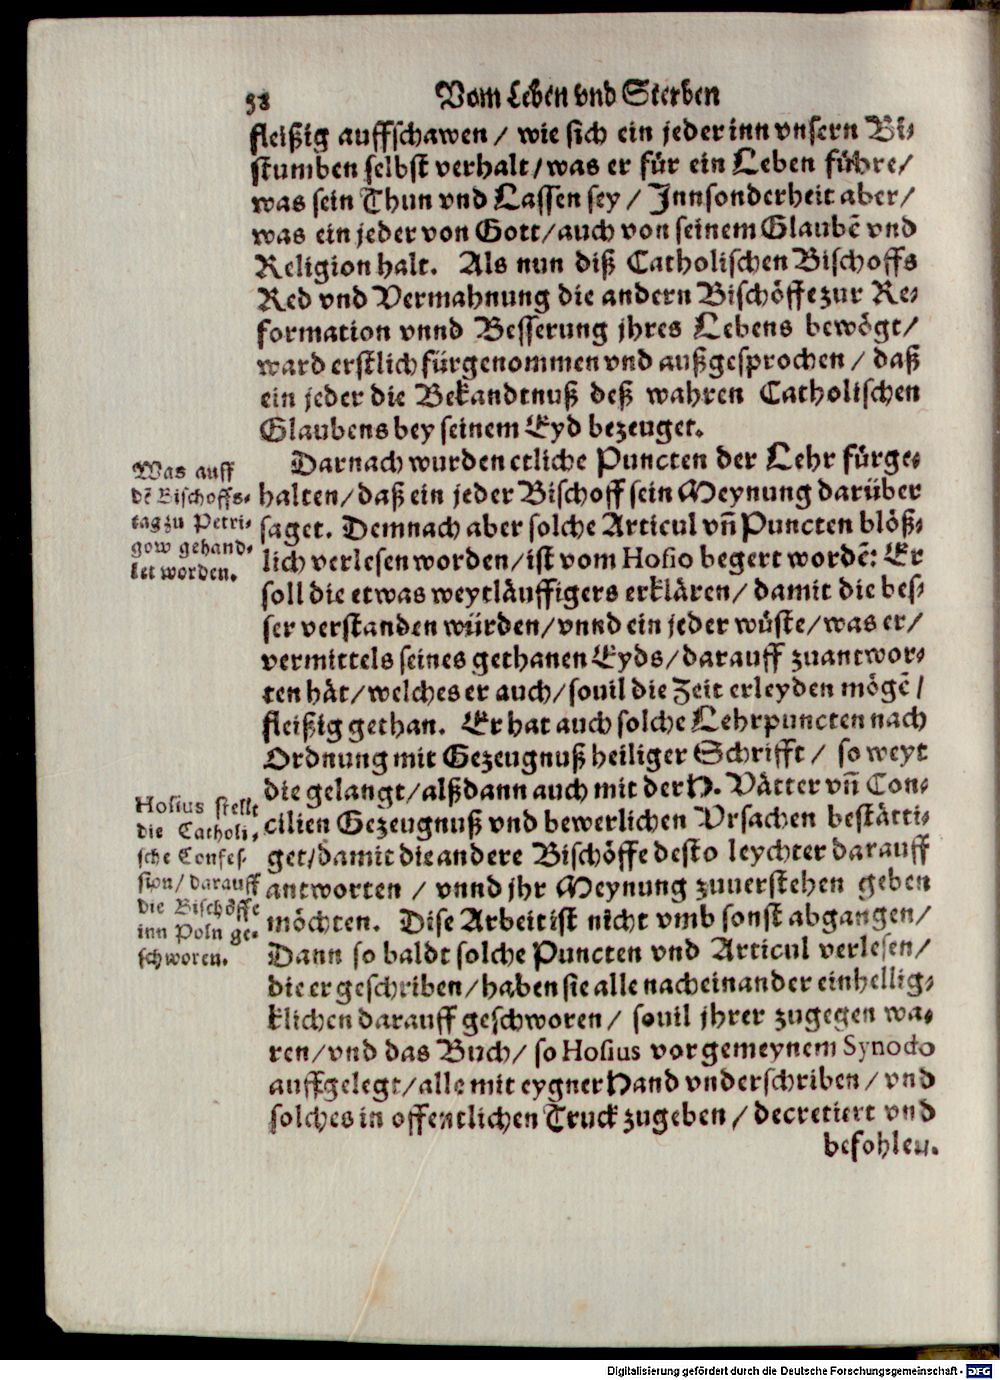 58 Vom Leben vnd Sterben
fleißig auffschawen / wie sich ein jeder inn vnsern Bi-
stumben selbst verhalt / was er für ein Leben führe /
was sein Thun vnd Lassen sey / Jnnsonderheit aber /
was ein jeder von Gott / auch von seinem Glaubē vnd
Religion halt. Als nun diß Catholischen Bischoffs
Red vnd Vermahnung die andern Bischöffe zur Re-
formation vnnd Besserung jhres Lebens bewögt /
ward erstlich fürgenommen vnd außgesprochen / daß
ein jeder die Bekandtnuß deß wahren Catholischen
Glaubens bey seinem Eyd bezeuget.
Darnach wurden etliche Puncten der Lehr fürge-
halten / daß ein jeder Bischoff sein Meynung darüber
saget. Demnach aber solche Articul vñ Puncten blöß-
lich verlesen worden / ist vom Hosio begert wordē: Er
soll die etwas weytläuffigers erklären / damit die bes-
ser verstanden würden / vnnd ein jeder wüste / was er /
vermittels seines gethanen Eyds / darauff zuantwor-
ten hät / welches er auch / souil die Zeit erleyden mögē /
fleißig gethan. Er hat auch solche Lehrpuncten nach
Ordnung mit Gezeugnuß heiliger Schrifft / so weyt
die gelangt / alßdann auch mit der H. Vätter vñ Con-
cilien Gezeugnuß vnd bewerlichen Vrsachen bestätti-
get / damit die andere Bischöffe desto leychter darauff
antworten / vnnd jhr Meynung zuuerstehen geben
möchten. Dise Arbeit ist nicht vmb sonst abgangen /
Dann so baldt solche Puncten vnd Articul verlesen /
die er geschriben / haben sie alle nacheinander einhellig-
klichen darauff geschworen / souil jhrer zugegen wa-
ren / vnd das Buch / so Hosius vor gemeynem Synodo
auffgelegt / alle mit eygner Hand vnderschriben / vnd
solches in offentlichen Truck zugeben / decretiert vnd
befohlen.
Was auff
dē Bischoffs-
tag zu Petri-
gow gehand-
let worden.
Hosius stellt
die Catholi-
sche Confes-
sion / darauff
die Bischöffe
inn Poln ge-
schworen.
Digitalisierung gefördert durch die Deutsche Forschungsgemeinschaft - DFG